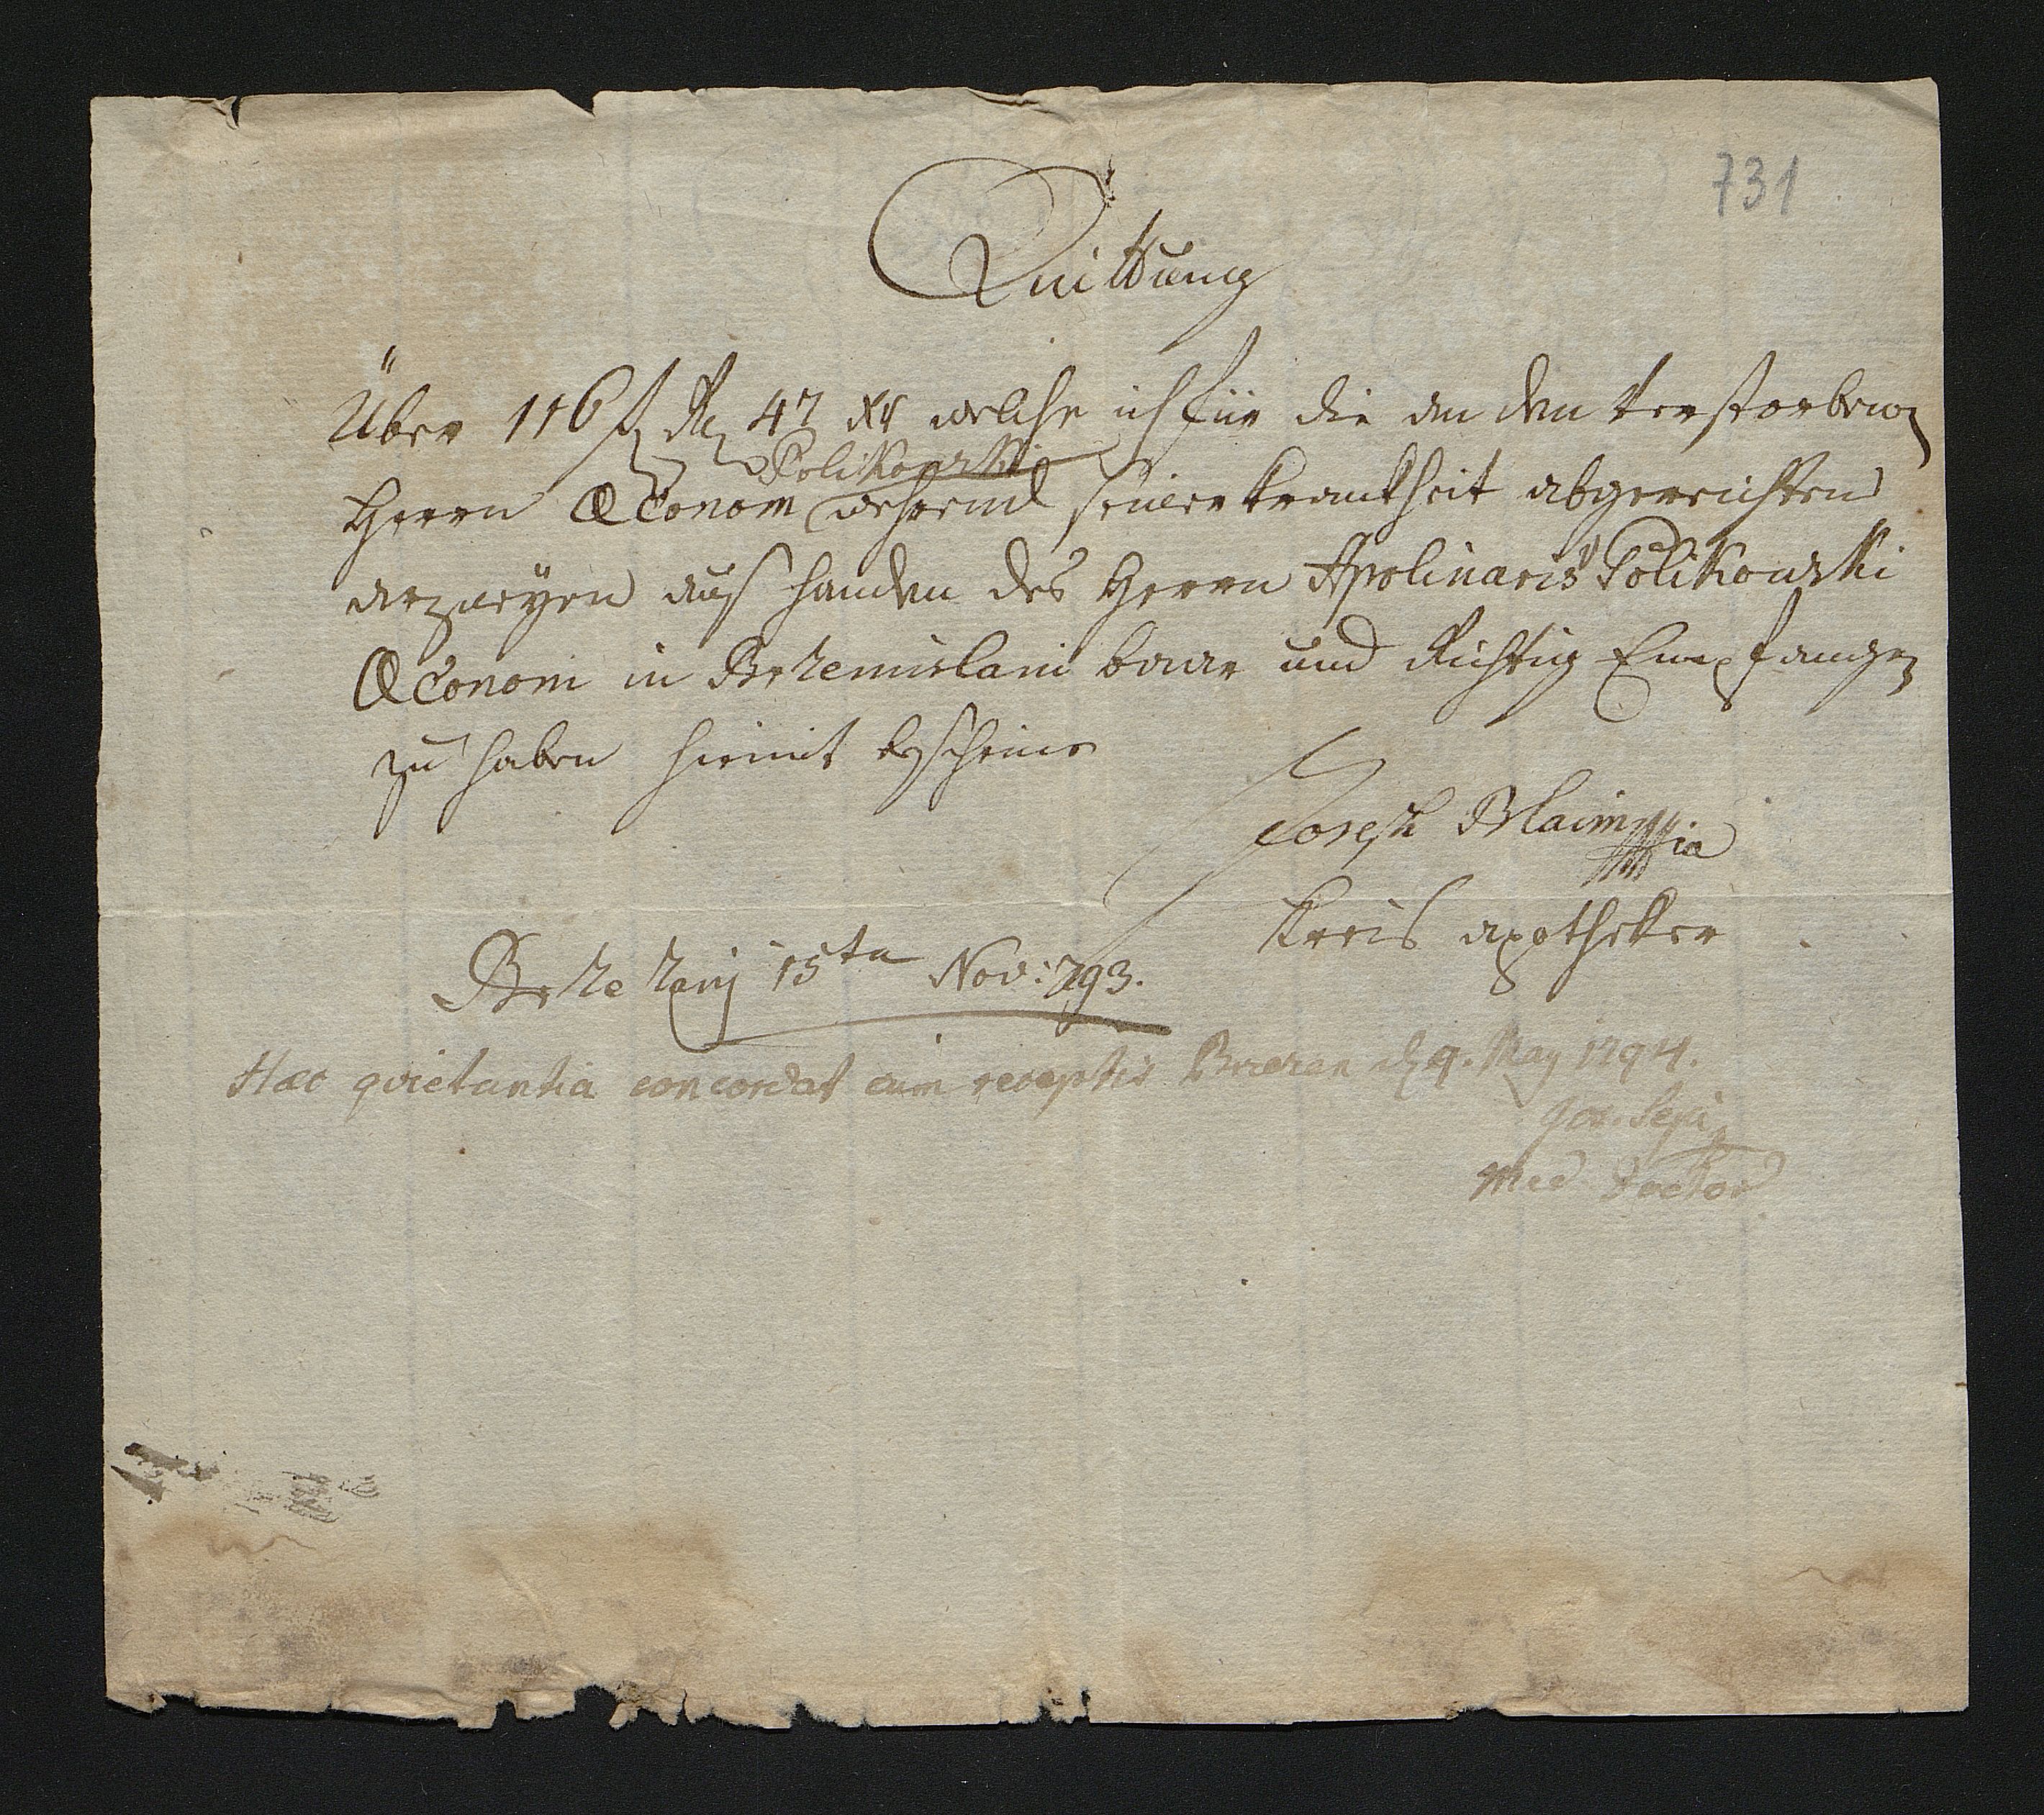 731
Quittung
Über 116 f 47 xr welche ich für die an den verstorbenen
Polikowski
Herrn Œconom wehrend seiner krankheit abgereichten
arzneyen aus handen des Herrn Apolinaris Polikowski
Œconom in Brzemislani baar und Richtig Empfangen
zu haben hiemit bescheine
Joseph
Kreis apotheker
Brzezanÿ 15ten Nov: 793.
Hæc qvietantia concordat cum receptis Brzezan d 9. May 1794.
Jos.
Med Doctor